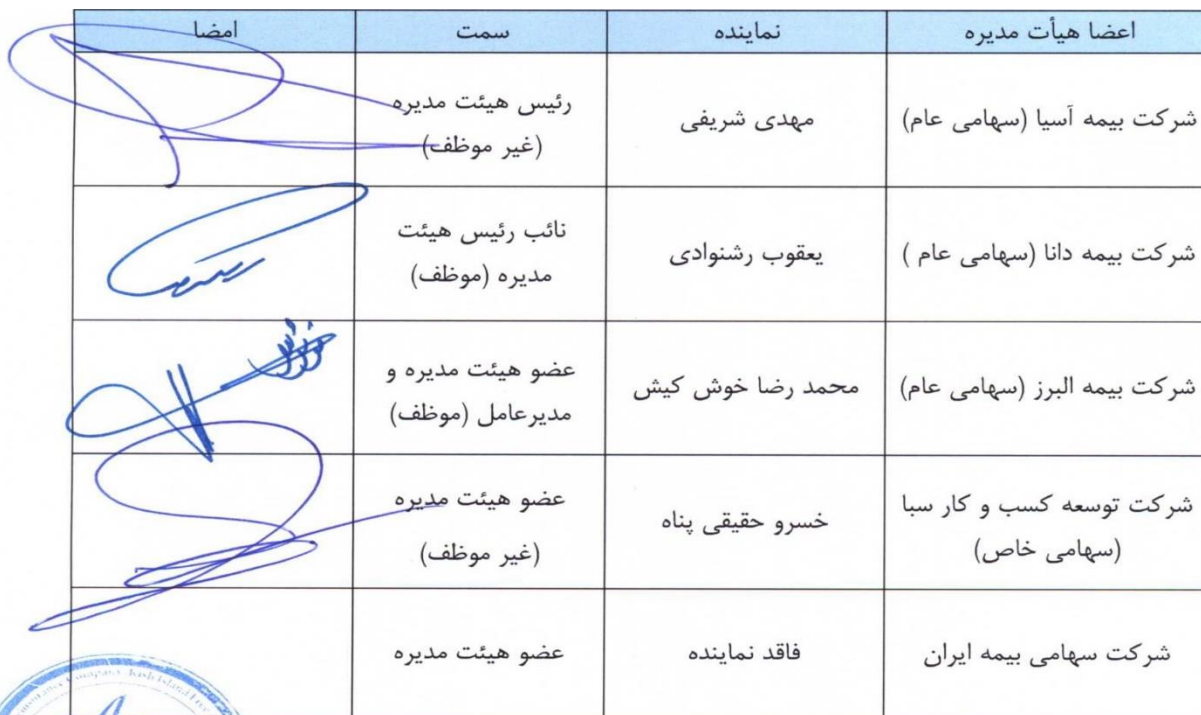 اعضا هیأت مدیره نماینده سمت امضا
شرکت بیمه آسیا (سهامی عام) مهدی شریفی رئیس هیئت مدیره
(غیر موظف)
شرکت بیمه دانا (سهامی عام ) یعقوب رشنوادی نائب رئیس هیئت
مدیره (موظف)
شرکت بیمه البرز (سهامی عام) محمد رضا خوش کیش عضو هیئت مدیره و
مدیرعامل (موظف)
شرکت توسعه کسب و کار سبا خسرو حقیقی پناه عضو هیئت مدیره
(سهامی خاص) (غیر موظف)
شرکت سهامی بیمه ایران فاقد نماینده عضو هیئت مدیره
Company Kish Island Free